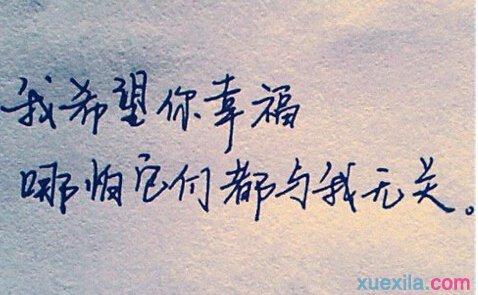 我希望你幸福
哪怕它们都与我无关。
xuexila.com